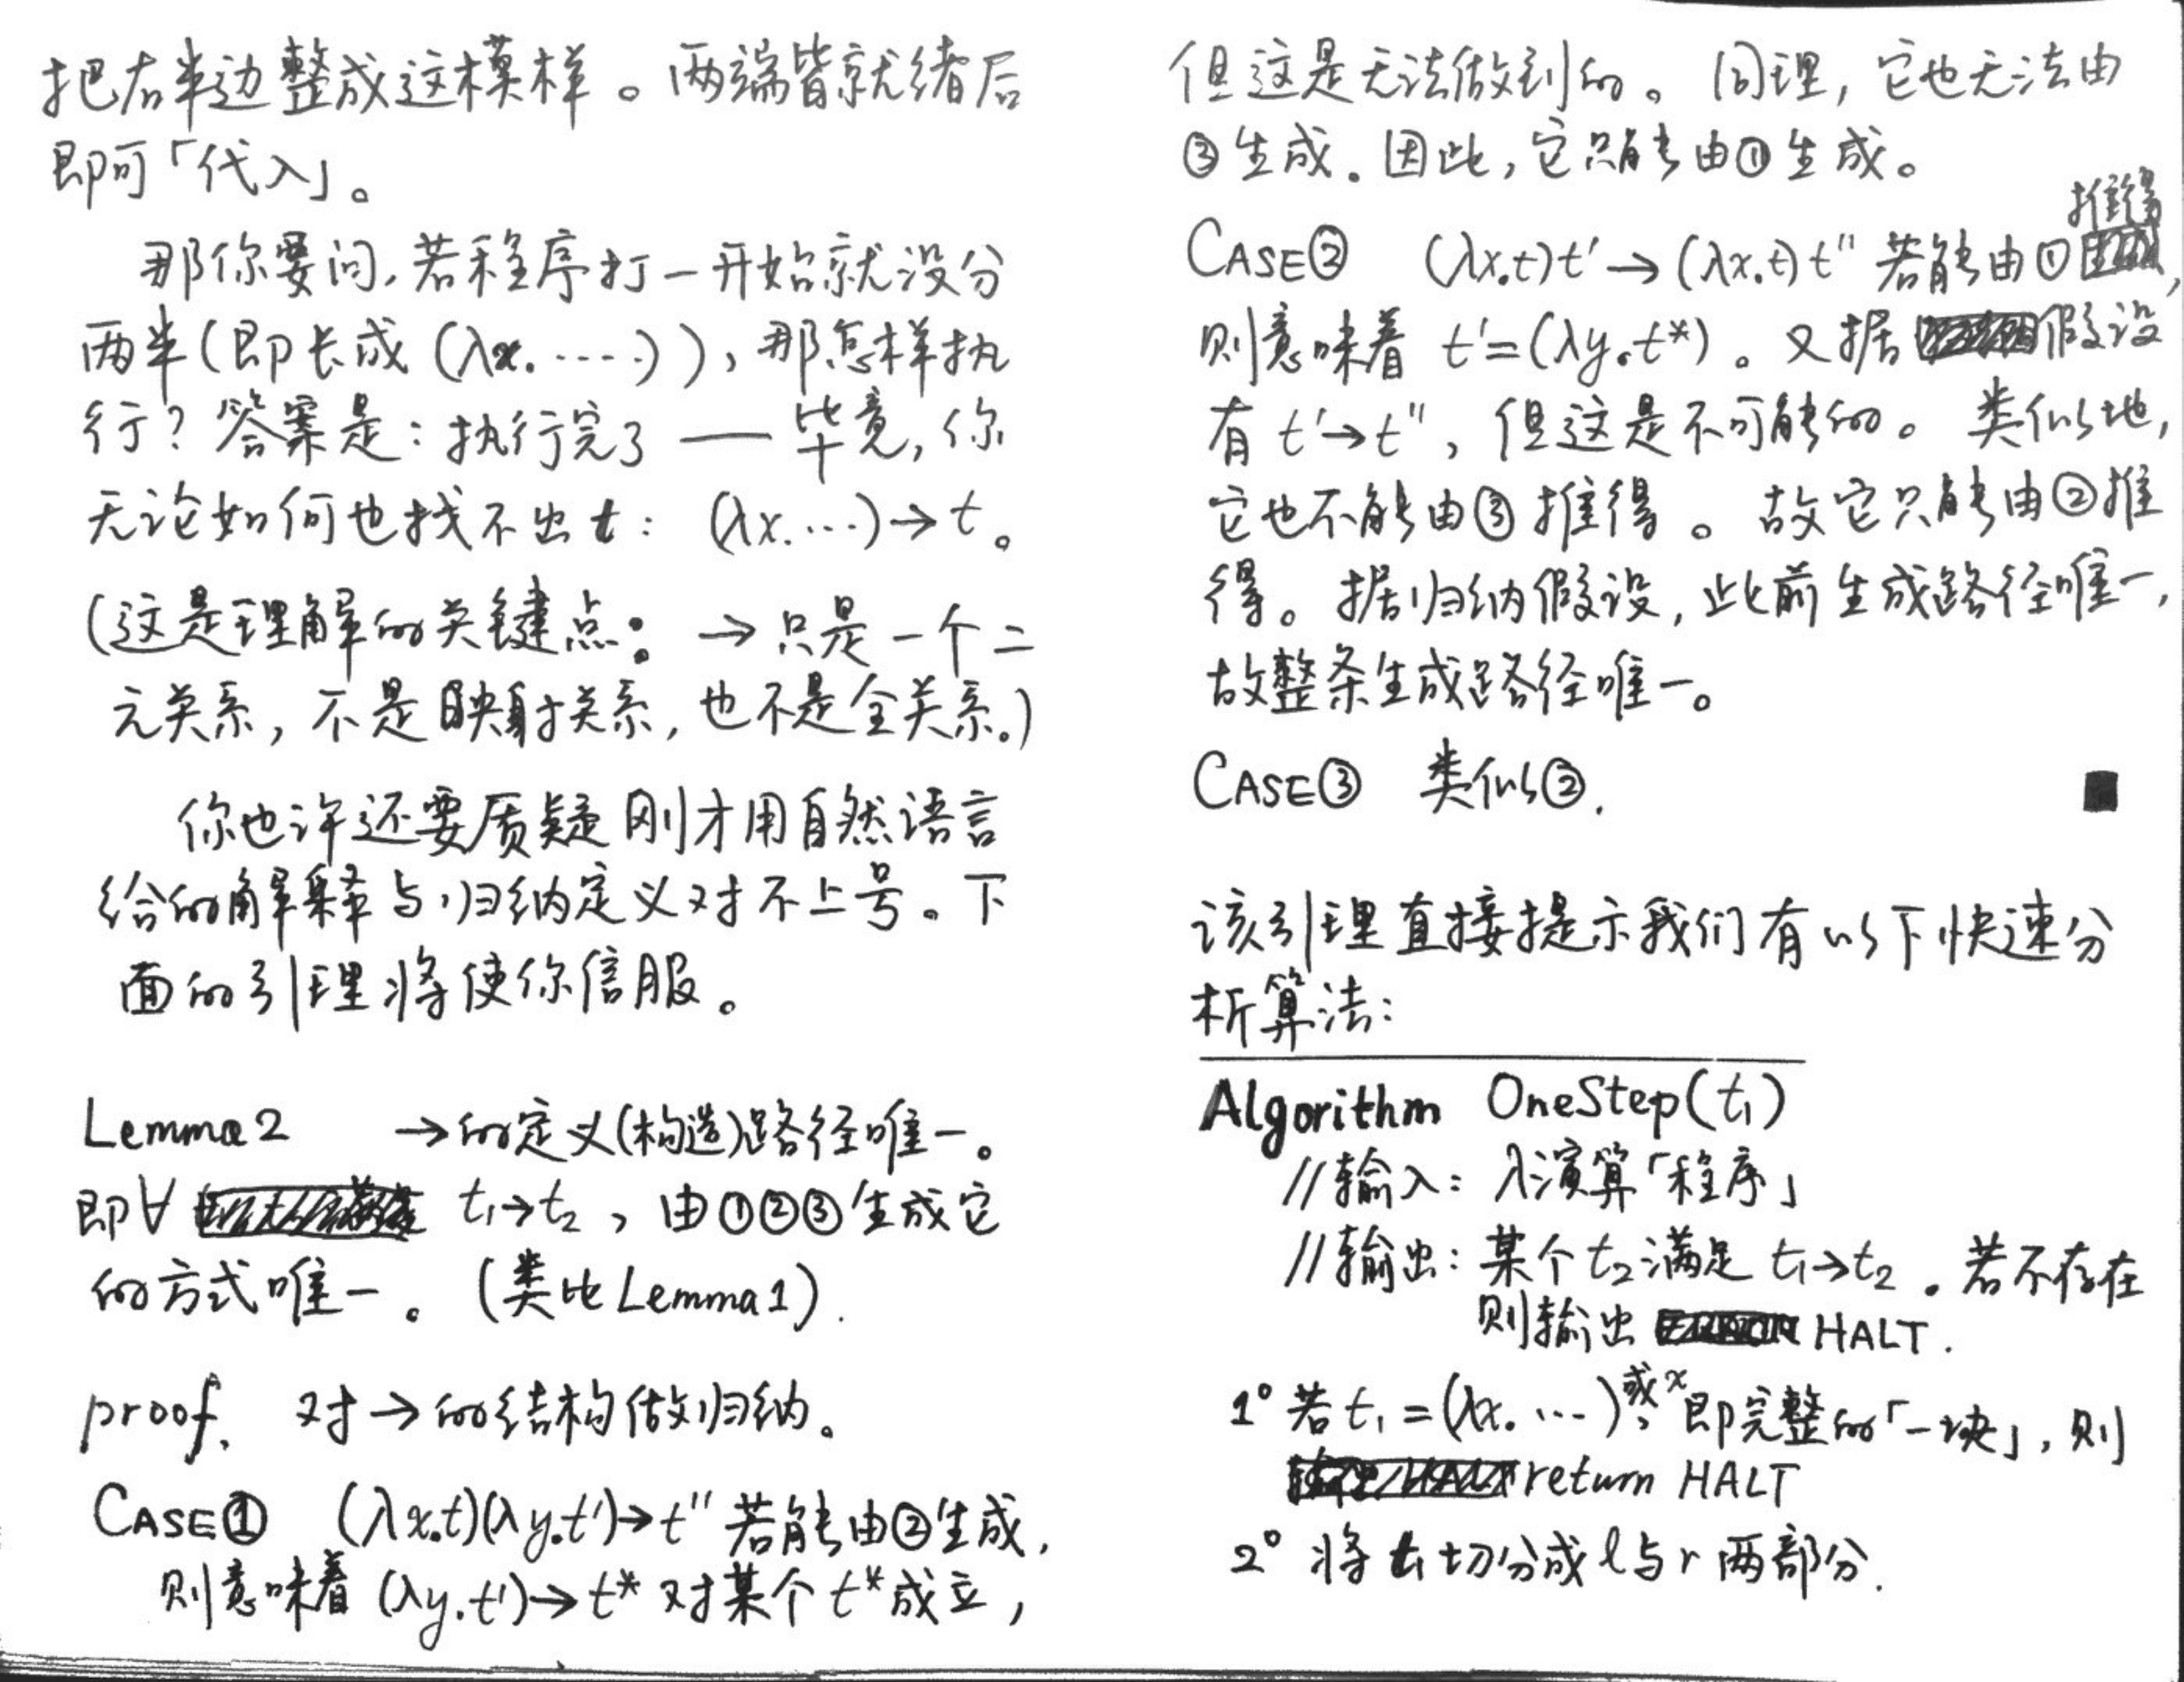 把右半边整成这模样。两端皆就绪后
即可「代入」。
那你要问,若程序打一开始就没分
两半(即长成(λx.·····)),那怎样执
行?答案是:执行完了——毕竟,你
无论如何也找不出t: (λx.···)→t。
(这是理解的关键点: →只是一个二
元关系,不是映射关系,也不是全关系。)
你也许还要质疑刚才用自然语言
给的解释与归纳定义对不上号。下
面的引理将使你信服。
Lemma 2 →的定义(构造)路径唯一。
即∀ t₁→t₂,由①②③生成它
的方式唯一。(类比Lemma 1).
proof. 对→的结构做归纳。
CASE① (λx.t)(λy.t')→t'' 若能由②生成,
则意味着 (λy.t')→t* 对某个t*成立,
但这是无法做到的。同理,它也无法由
③生成.因此,它只能由①生成。
CASE② (λx.t)t'→(λx.t)t'' 若能由①推得,
则意味着 t'=(λy.t*)。又据假设
有 t'→t'',但这是不可能的。类似地,
它也不能由③推得。故它只能由②推
得。据归纳假设,此前生成路径唯一,
故整条生成路径唯一。
CASE③ 类似②. ■
该引理直接提示我们有以下快速分
析算法:
Algorithm OneStep(t₁)
//输入: λ演算「程序」
//输出: 某个t₂满足 t₁→t₂.若不存在
则输出 HALT.
1° 若t₁=(λx.···)或x,即完整的「一块」,则
return HALT
2° 将t₁切分成l与r两部分.